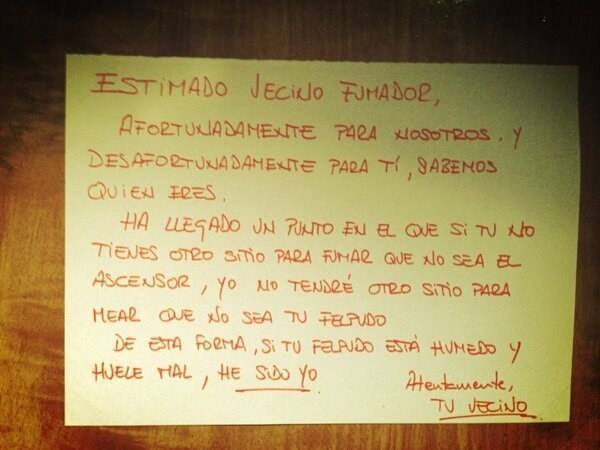 ESTIMADO VECINO FUMADOR,
AFORTUNADAMENTE PARA NOSOTROS. Y
DESAFORTUNADAMENTE PARA TÍ, SABEMOS
QUIEN ERES.
HA LLEGADO UN PUNTO EN EL QUE SI TU NO
TIENES OTRO SITIO PARA FUMAR QUE NO SEA EL
ASCENSOR, YO NO TENDRÉ OTRO SITIO PARA
MEAR QUE NO SEA TU FELPUDO
DE ESTA FORMA, SI TU FELPUDO ESTÁ HUMEDO Y
HUELE MAL, HE SIDO YO
Atentamente,
TU VECINO